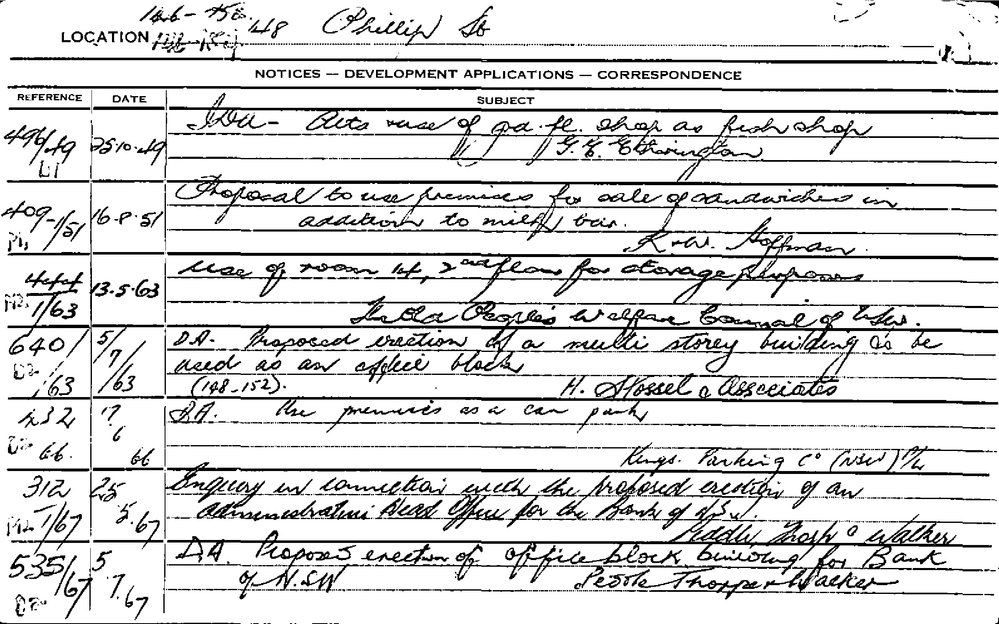 146-150.
LOCATION 148 Phillip St
NOTICES — DEVELOPMENT APPLICATIONS — CORRESPONDENCE
REFERENCE DATE SUBJECT
496/49 25.10.49 IDA - Alts & use of gd. fl. shop as fish shop
G. E. Etherington
409-1/51 16.8.51 Proposal to use premises for sale of sandwiches in
addition to milk bar.
K. & W. Hoffman.
444 1/63 13.5.63 Use of room 14, 2nd floor for storage purposes
The Old People's Welfare Council of NSW.
640/63 5/7/63 D.A. Proposed erection of a multi storey building to be
used as an office block
(148-152). H. Stossel & Associates
232 66. 17 6 66 D.A. Use premises as a car park
Kings Parking Co (NSW) P/L
312 1/67 25 5.67 Enquiry in connection with the proposed erection of an
administrative Head Office for the Bank of NSW.
Peddle Thorp & Walker
535/67 5 7.67 D.A. Proposed erection of office block building for Bank
of N.S.W Peddle Thorp & Walker